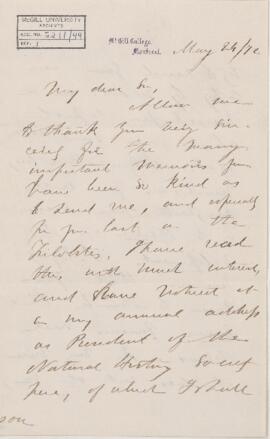 McGILL UNIVERSITY
ARCHIVES
ACC. NO. 2211/49
REF. 1
McGill College,
Montreal.
May 24/72
My dear Sir,
Allow me
to thank you very sin-
cerely for the many
important memoirs you
have been so kind as
to send me, and especially
for your last on the
Trilobites. I have read
this with much interest,
and have noticed it
in my annual address
as President of the
Natural History Society
here, of which I shall
son